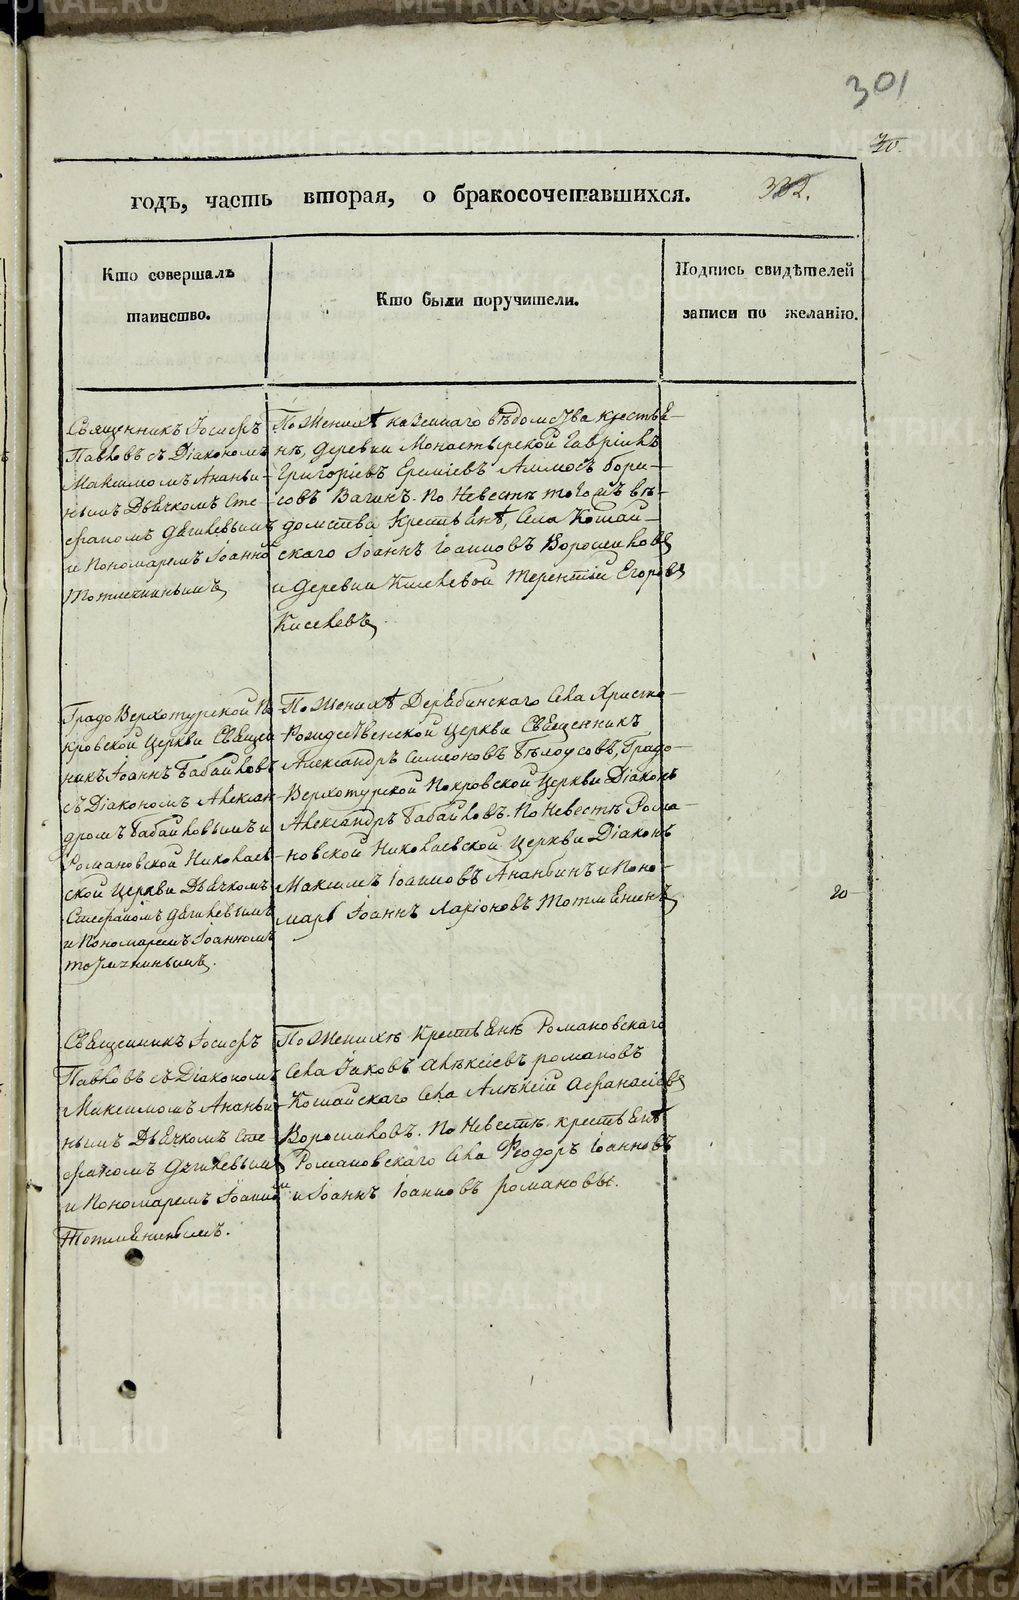 301
70.
годъ, часть вторая, о бракосочетавшихся. 332.
Кто совершалъ
таинство.
Кто были поручители.
Подпись свидѣтелей
записи по желанію.
Священникъ Іосифъ
Павловъ съ Діакономъ
Максимомъ Ананьи-
нымъ Дьячкомъ Сте-
фаномъ
и Пономаремъ Іоанно
Тотмянинымъ
По Женихѣ казеннаго вѣдомства крестья-
нѣ, деревни Монастырской Гавріилъ
Григоріевъ Еремѣевъ Аммосъ Бори-
совъ Вагинъ. По Невестѣ тогожъ вѣ-
домства Крестьянѣ, Села Кошай-
скаго Іоаннъ Іоанновъ Ворошиловъ
и деревни Киселевой Терентій Егоровъ
Киселевъ
Градо Верхотурской По
кровской Церкви Священ
никъ Іоаннъ Бабайловъ
съ Діакономъ Алексан
дромъ Бабайловымъ и
Романовской Николаев-
ской Церкви Дьячкомъ
Стефаномъ
и Пономаремъ Іоанномъ
Тотмянинымъ.
По Женихѣ Дерябинскаго Села Христо-
Рождественской Церкви Священникъ
Александръ Симеоновъ Бѣлоусовъ, Градо-
Верхотурской Покровской Церкви Діаконъ
Александръ Бабайловъ. По Невестѣ Рома-
новской Николаевской Церкви Діаконъ
Максимъ Іоанновъ Ананьинъ и Поно-
марь Іоаннъ Ларіоновъ Тотмянинъ
20
Священникъ Іосифъ
Павловъ съ Діакономъ
Максимомъ Ананьи
нымъ Дьячкомъ Сте
фаномъ
и Пономаремъ Іоанном
Тотмянинымъ.
По Женихѣ Крестьянѣ Романовскаго
Села Іаковъ Алексіевъ Романовъ
Кошайскаго Села Алексій Афанасіевъ
Ворошиловъ. По Невестѣ крестьянѣ
Романовскаго Села Ѳеодоръ Іоанновъ
и Іоаннъ Іоанновъ Романовы.
METRIKI.GASO-URAL.RU